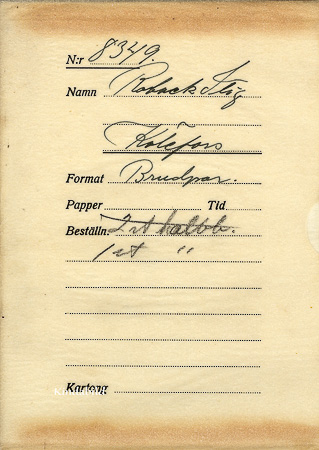 N:r 8349.
Namn Roback Stig
Kolefors
Format Brudpar.
Papper Tid
Beställn. 2 st halvb.
1 st "
Kartong